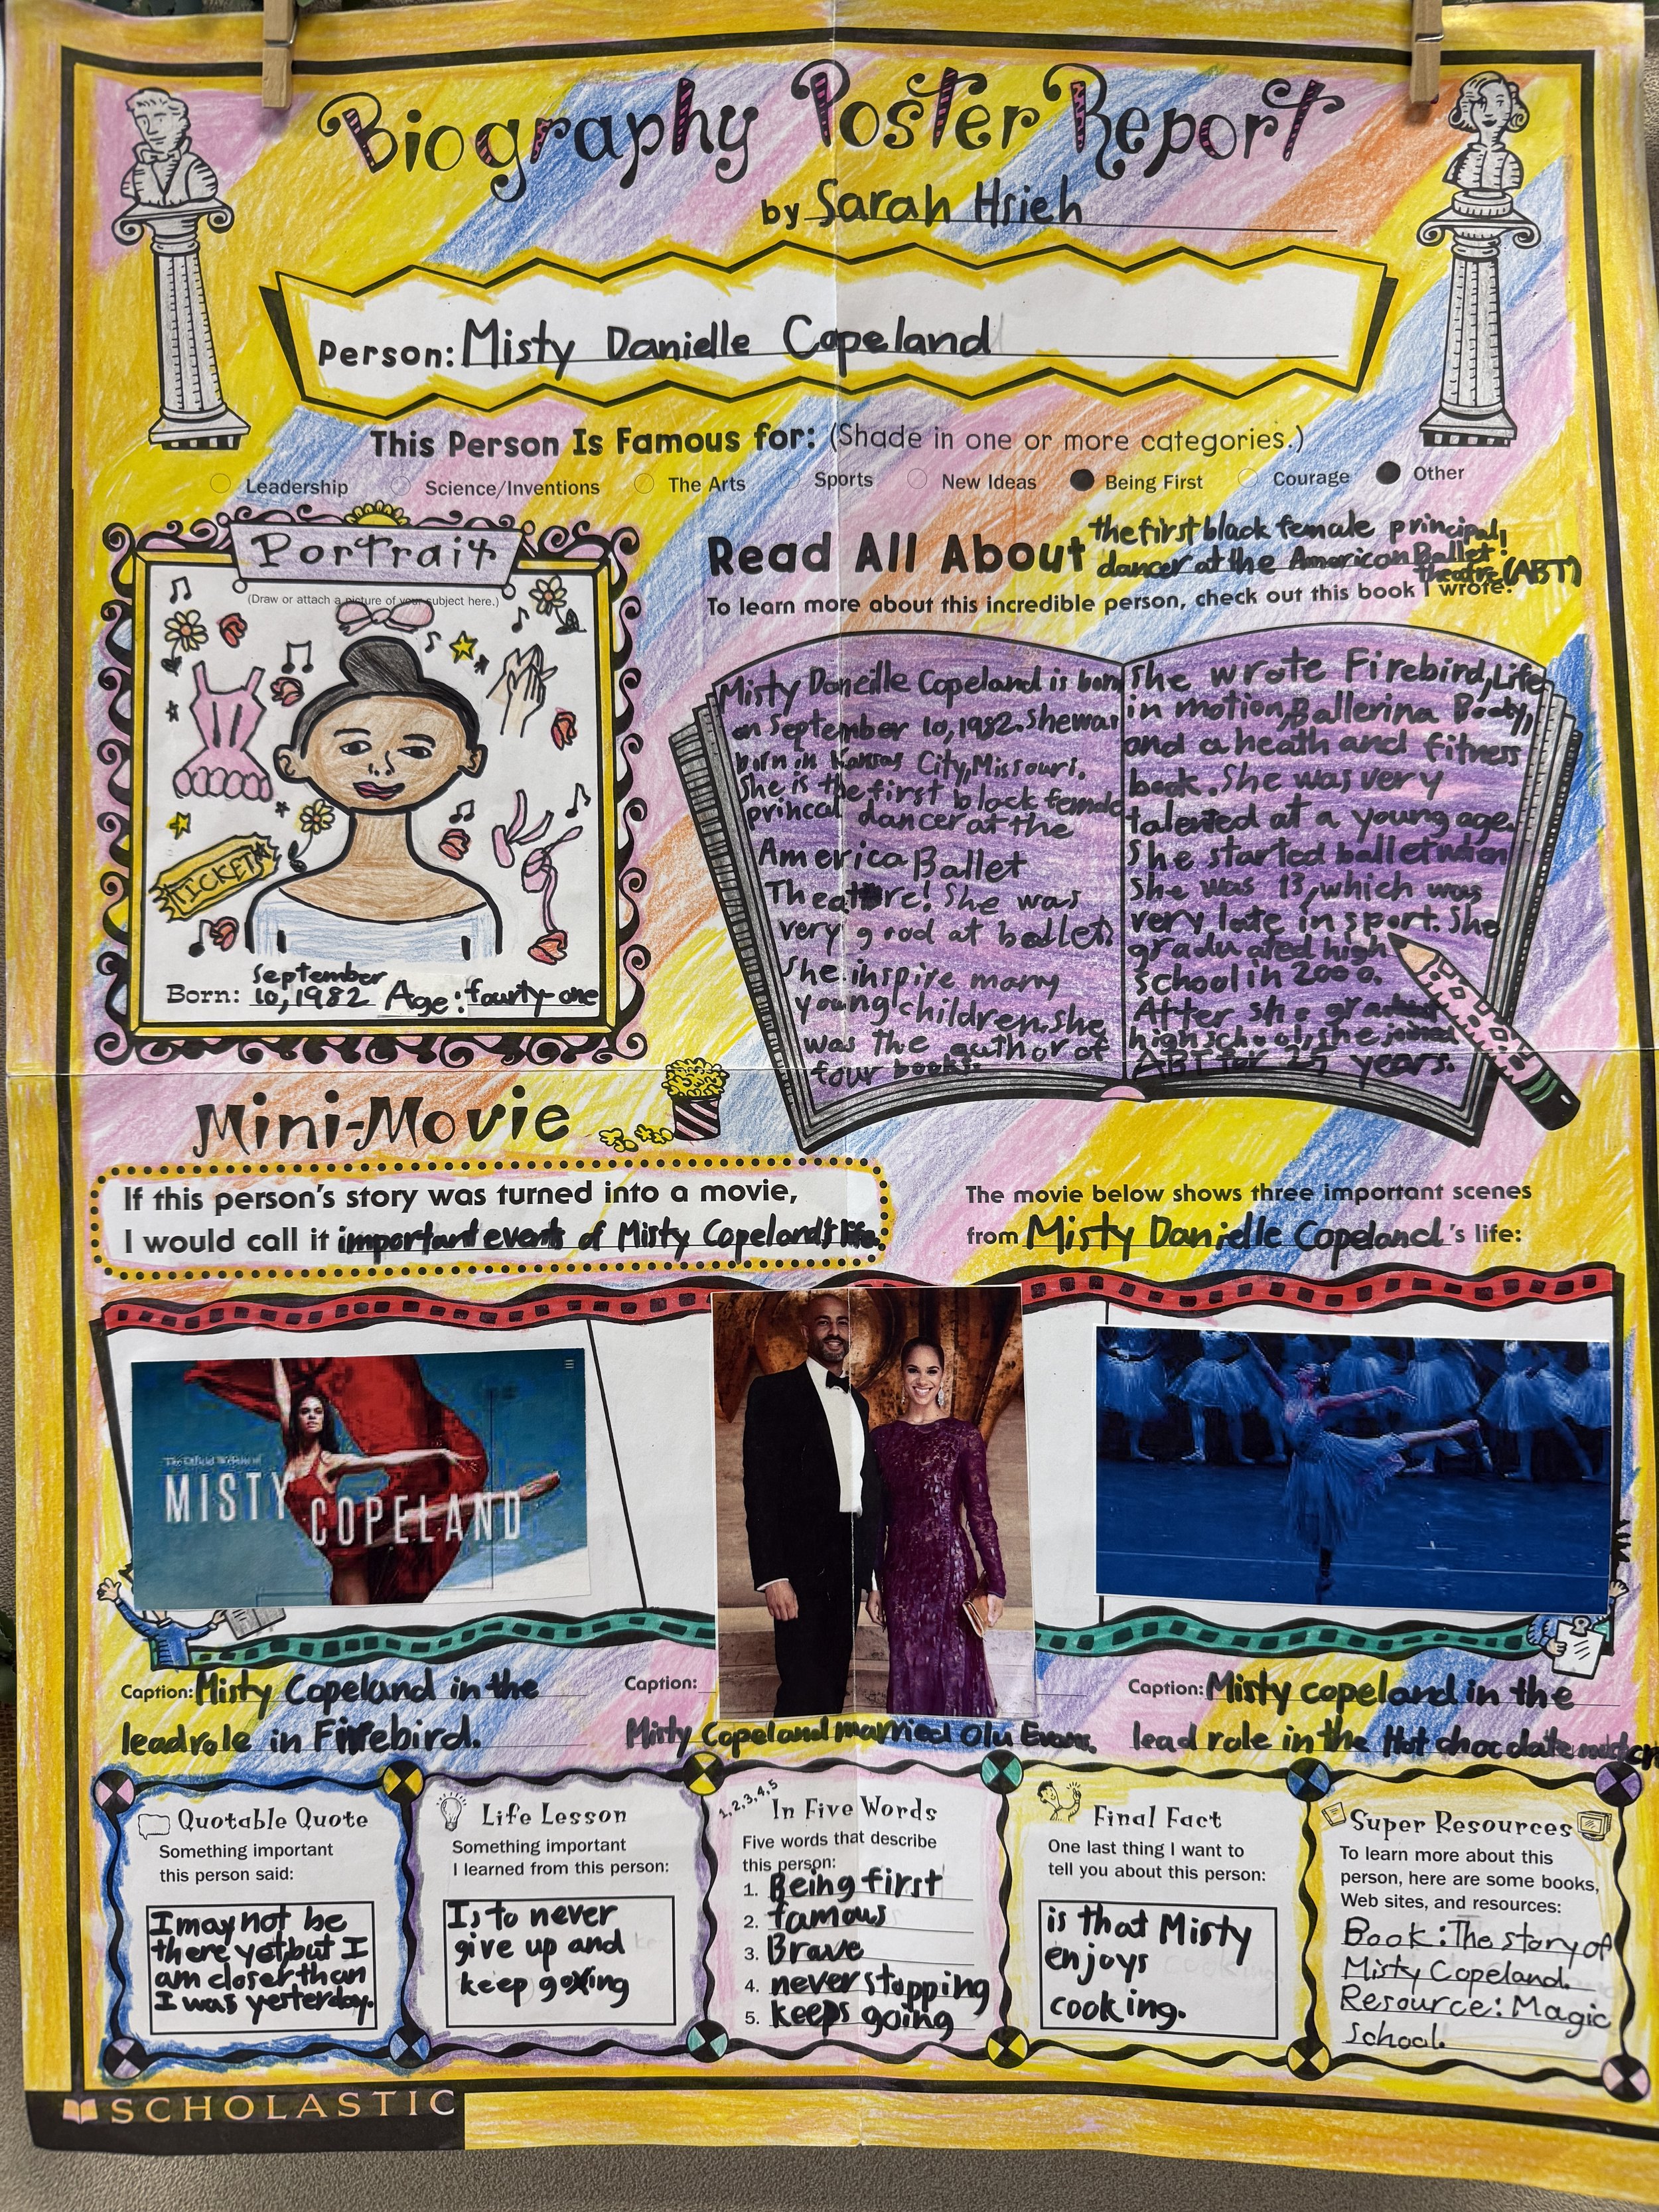 Biography Poster Report
by Sarah Hsieh
Person: Misty Danielle Copeland
This Person Is Famous for: (Shade in one or more categories.)
Leadership Science/Inventions The Arts Sports New Ideas Being First Courage Other
Portrait
(Draw or attach a picture of your subject here.)
TICKETS
Born: September
10, 1982 Age: fourty-one
Read All About the first black female principal
dancer at the American Ballet!
Theatre (ABT)
To learn more about this incredible person, check out this book I wrote!
Misty Daneille Copeland is born
on September 10, 1982. She was
born in Kansas City, Missouri.
She is the first black female
princal dancer at the
America Ballet
Theatre! She was
very good at ballet.
She inspire many
young children. She
was the author of
four books.
She wrote Firebird, Life
in motion, Ballerina Body,
and a heath and fitness
book. She was very
talented at a young age.
She started ballet when
She was 13, which was
very late in sport. She
graduated high
school in 2000.
After she
high school, she joined
ABT for 25 years.
Mini-Movie
If this person's story was turned into a movie,
I would call it important events of Misty Copeland's life.
The movie below shows three important scenes
from Misty Danielle Copeland's life:
The Official Website of
MISTY
COPELAND
Caption: Misty Copeland in the
lead role in Firebird.
Caption:
Misty Copeland married Olu Evans.
Caption: Misty copeland in the
lead role in the Hot chocolate
Quotable Quote
Something important
this person said:
I may not be
there yet, but I
am closer than
I was yesterday.
Life Lesson
Something important
I learned from this person:
Is to never
give up and
keep going
1, 2, 3, 4, 5
In Five Words
Five words that describe
this person:
1. Being first
2. famous
3. Brave
4. never stopping
5. keeps going
Final Fact
One last thing I want to
tell you about this person:
is that Misty
enjoys
cooking.
Super Resources
To learn more about this
person, here are some books,
Web sites, and resources:
Book: The story of
Misty Copeland.
Resource: Magic
School.
SCHOLASTIC